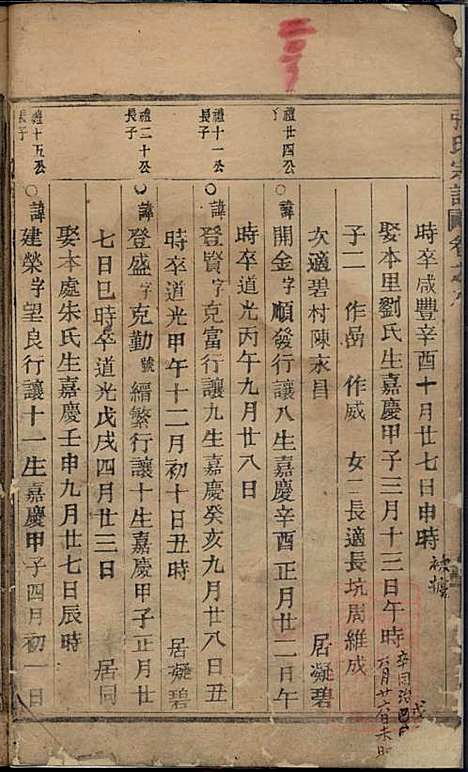 張氏宗譜
時卒咸豐辛酉十月廿七日申時
娶本里劉氏生嘉慶甲子三月十三日午時
卒同治
六月廿六日未時
子二 作嵒 作威 女二長適長坑周維成
次適碧村陳永昌 居凝碧
禮廿四公
○諱開金字順發行讓八生嘉慶辛酉正月廿二日午
時卒道光丙午九月廿八日
禮十一公長子
○諱登賢字克富行讓九生嘉慶癸亥九月廿八日丑
時卒道光甲午十二月初十日丑時 居凝碧
禮二十公長子
○諱登盛字克勤號縉繁行讓十生嘉慶甲子正月廿
七日巳時卒道光戊戌四月廿三日 居同
娶本處朱氏生嘉慶壬申九月廿七日辰時
禮十五公長子
○諱建榮字望良行讓十一生嘉慶甲子四月初一日